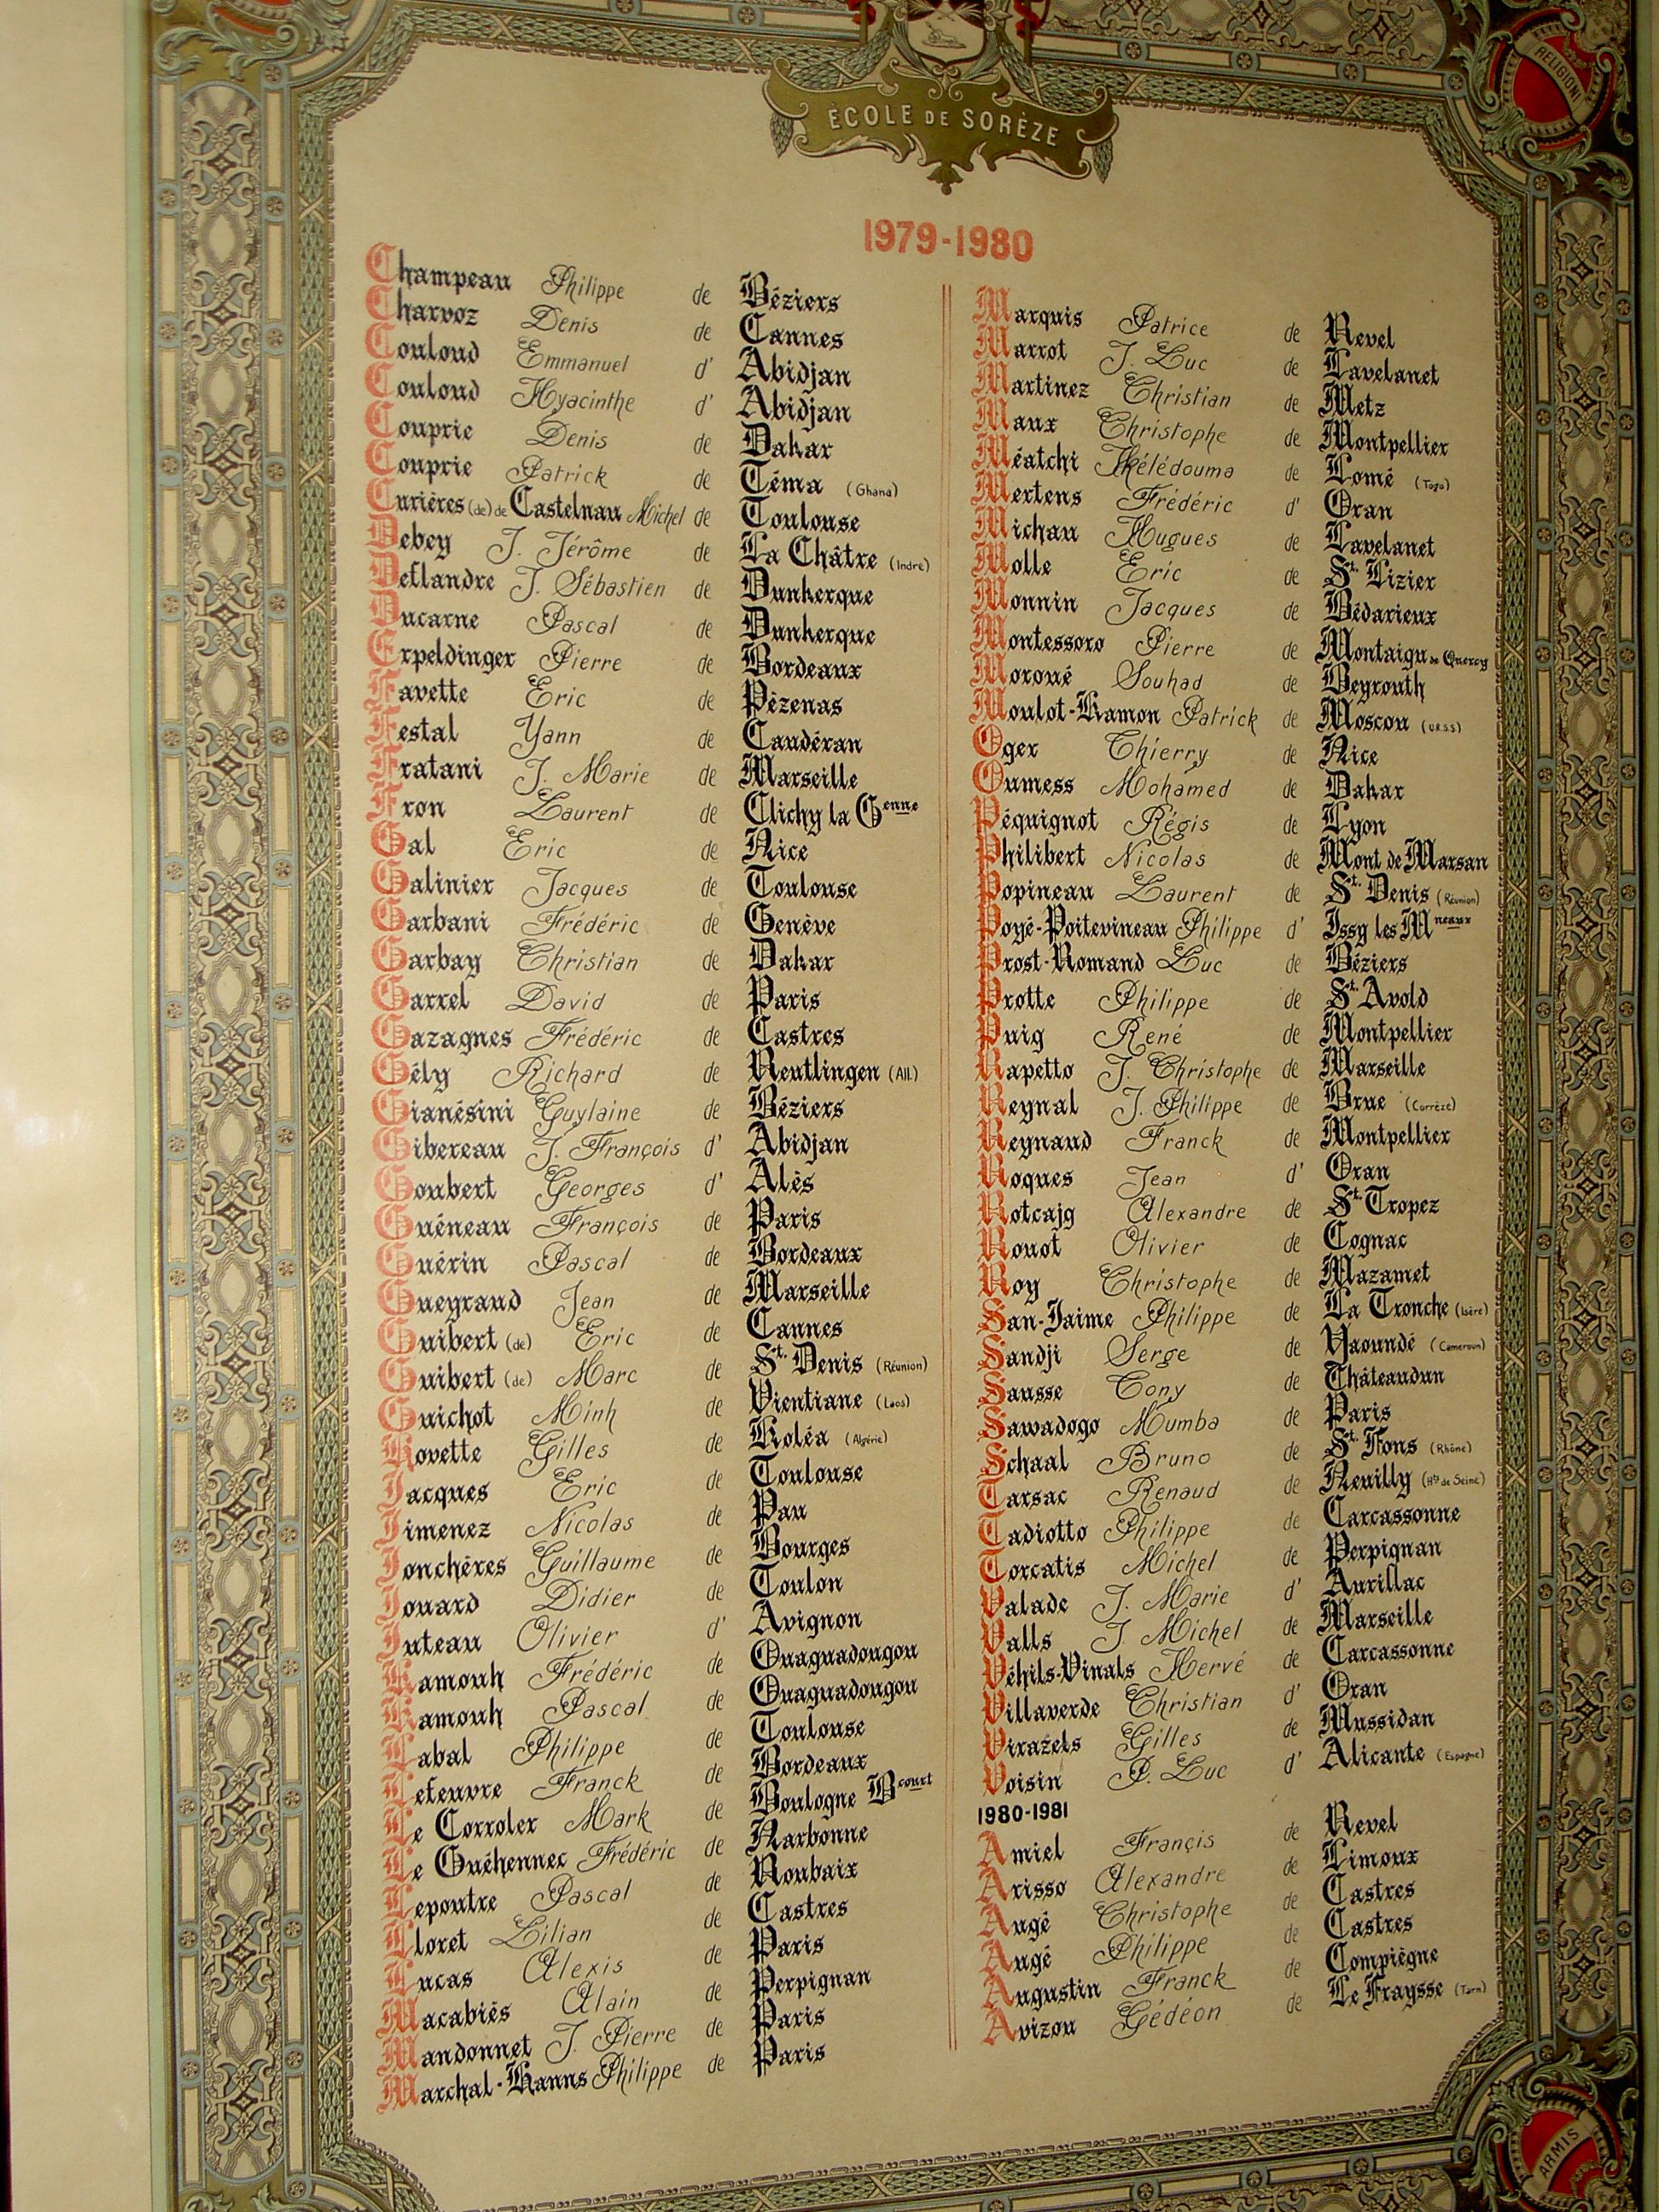 RELIGIONI
ÉCOLE DE SORÈZE
1979-1980
Champeau Philippe de Béziers
Charvoz Denis de Cannes
Couloud Emmanuel d' Abidjan
Couloud Hyacinthe d' Abidjan
Couprie Denis de Dakar
Couprie Patrick de Téma (Ghana)
Curières (de) de Castelnau Michel de Toulouse
Debey J. Jérôme de La Châtre (Indre)
Deflandre J. Sébastien de Dunkerque
Ducarne Pascal de Dunkerque
Erpeldinger Pierre de Bordeaux
Favette Eric de Pèzenas
Festal Yann de Caudéran
Fratani J. Marie de Marseille
Fron Laurent de Clichy la Genne
Gal Eric de Nice
Galinier Jacques de Toulouse
Garbani Frédéric de Genève
Garbay Christian de Dakar
Garrel David de Paris
Gazagnes Frédéric de Castres
Gély Richard de Reutlingen (All.)
Gianésini Guylaine de Béziers
Gibereau J. François d' Abidjan
Goubert Georges d' Alès
Guéneau François de Paris
Guérin Pascal de Bordeaux
Gueyraud Jean de Marseille
Guibert (de) Eric de Cannes
Guibert (de) Marc de St. Denis (Réunion)
Guichot Minh de Vientiane (Laos)
Hovette Gilles de Koléa (Algérie)
Jacques Eric de Toulouse
Jimenez Nicolas de Pau
Jonchères Guillaume de Bourges
Jouard Didier de Toulon
Juteau Olivier d' Avignon
Kamouh Frédéric de Ouaguadougou
Kamouh Pascal de Ouaguadougou
Labal Philippe de Toulouse
Lefeuvre Franck de Bordeaux
Le Corroler Mark de Boulogne Bcourt
Le Guéhennec Frédéric de Narbonne
Lepoutre Pascal de Roubaix
Lloret Lilian de Castres
Lucas Alexis de Paris
Macabiés Alain de Perpignan
Mandonnet J. Pierre de Paris
Marchal-Hanns Philippe de Paris
Marquis Patrice de Revel
Marrot J. Luc de Lavelanet
Martinez Christian de Metz
Maux Christophe de Montpellier
Méatchi Tkélédouma de Lomé (Togo)
Mertens Frédéric d' Oran
Michau Hugues de Lavelanet
Molle Eric de St. Lizier
Monnin Jacques de Bédarieux
Montessoro Pierre de Montaigu de Quercy
Moroué Souhad de Beyrouth
Moulot-Ramon Patrick de Moscou (URSS)
Oger Thierry de Nice
Oumess Mohamed de Dakar
Péquignot Régis de Lyon
Philibert Nicolas de Mont de Marsan
Popineau Laurent de St. Denis (Réunion)
Poyé-Poitevineau Philippe d' Issy les Mneaux
Prost-Romand Luc de Béziers
Protte Philippe de St. Avold
Puig René de Montpellier
Rapetto J. Christophe de Marseille
Reynal J. Philippe de Brue (Corrèze)
Reynaud Franck de Montpellier
Roques Jean d' Oran
Rotcajg Alexandre de St. Tropez
Rouot Olivier de Cognac
Roy Christophe de Mazamet
San-Jaime Philippe de La Tronche (Isère)
Sandji Serge de Yaoundé (Cameroun)
Sausse Tony de Châteaudun
Sawadogo Mumba de Paris
Schaal Bruno de St. Fons (Rhône)
Tarsac Renaud de Neuilly (Hts de Seine)
Tadiotto Philippe de Carcassonne
Torcatis Michel de Perpignan
Valade J. Marie d' Aurillac
Valls J. Michel de Marseille
Véhils-Vinals Hervé de Carcassonne
Villaverde Christian d' Oran
Virazels Gilles de Mussidan
Voisin P. Luc d' Alicante (Espagne)
1980-1981
Amiel Françis de Revel
Arisso Alexandre de Limoux
Augé Christophe de Castres
Augé Philippe de Castres
Augustin Franck de Compiègne
Avizou Gédéon de Le Fraysse (Tarn)
ARMIS